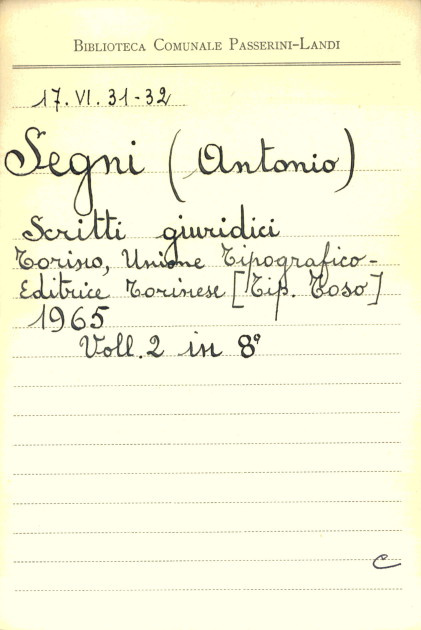 Biblioteca Comunale Passerini-Landi
17. VI. 31-32
Segni (Antonio)
Scritti giuridici
Torino, Unione Tipografico-
Editrice Torinese [Tip. Toso]
1965
Voll. 2 in 8°
C